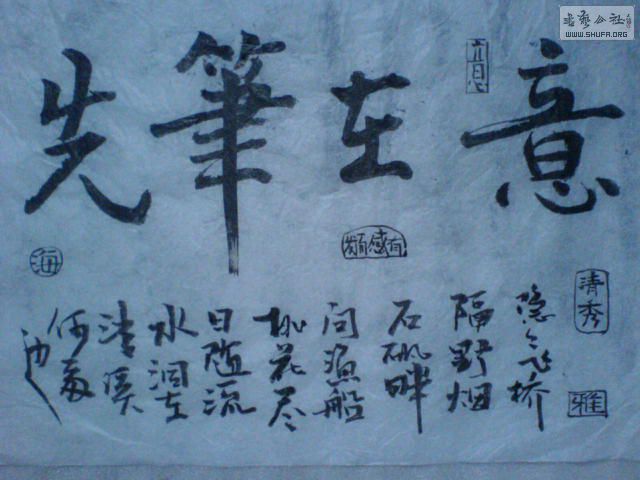 書藝公社
WWW.SHUFA.ORG
意在筆先
有感而发
海
清秀
雅
隐々飞桥
隔野烟
石矶畔
问渔船
桃花尽
日随流
水洞在
清溪
何处
边